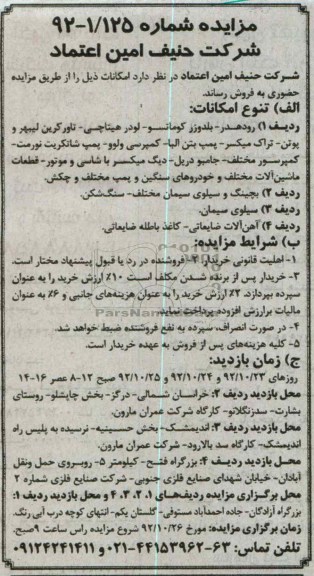 مزایده شماره ۱/۱۲۵-۹۲
شرکت حنیف امین اعتماد
شرکت حنیف امین اعتماد در نظر دارد امکانات ذیل را از طریق مزایده
حضوری به فروش رساند.
الف) تنوع امکانات:
ردیف ۱) رودهدر- بلدوزر کوماتسو- لودر هیتاچی- تاورکرین لیبهر و
پوتن- تراک میکسر- پمپ بتن البا- کمپرسی ولوو- پمپ شاتکریت نورمت-
کمپرسور مختلف- جامبو دریل- دیگ میکسر با شاسی و موتور- قطعات
ماشین‌آلات مختلف و خودروهای سنگین و پمپ مختلف و چکش.
ردیف ۲) بچینگ و سیلوی سیمان مختلف- سنگ‌شکن.
ردیف ۳) سیلوی سیمان.
ردیف ۴) آهن‌آلات ضایعاتی- کاغذ باطله ضایعاتی.
ب) شرایط مزایده:
۱- اهلیت قانونی خریدار ۲- فروشنده در رد یا قبول پیشنهاد مختار است.
۳- خریدار پس از برنده شدن مکلف است ۱۰٪ ارزش خرید را به عنوان
سپرده بپردازد. ۲٪ ارزش خرید را به عنوان هزینه‌های جانبی و ۶٪ به عنوان
مالیات برارزش افزوده پرداخت نماید.
۴- در صورت انصراف، سپرده به نفع فروشنده ضبط خواهد شد.
۵- کلیه هزینه‌های پس از فروش به عهده خریدار است.
ج) زمان بازدید:
روزهای ۹۲/۱۰/۲۳ و ۹۲/۱۰/۲۴ و ۹۲/۱۰/۲۵ صبح ۱۲-۸ عصر ۱۶-۱۴
محل بازدید ردیف ۲: خراسان شمالی- درگز- بخش چاپشلو- روستای
بشارت- سدزنگلانو- کارگاه شرکت عمران مارون.
محل بازدید ردیف ۳: اندیمشک- بخش حسینیه- نرسیده به پلیس راه
اندیمشک- کارگاه سد بالارود- شرکت عمران مارون.
محل بازدید ردیف ۴: بزرگراه فتح- کیلومتر ۵- روبروی حمل ونقل
آبادان- خیابان شهدای صنایع فلزی جنوبی- شرکت صنایع فلزی شماره ۲
محل برگزاری مزایده ردیف‌های ۱، ۲، ۳، ۴ و محل بازدید ردیف ۱:
بزرگراه آزادگان- جاده احمدآباد مستوفی- گلستان یکم- انتهای کوچه درب آبی رنگ.
زمان برگزاری مزایده: مورخ ۹۲/۱۰/۲۶ شروع مزایده راس ساعت ۹صبح.
تلفن تماس: ۶۳-۴۴۱۵۳۹۶۲-۰۲۱ و ۰۹۱۲۴۲۴۱۴۱۱